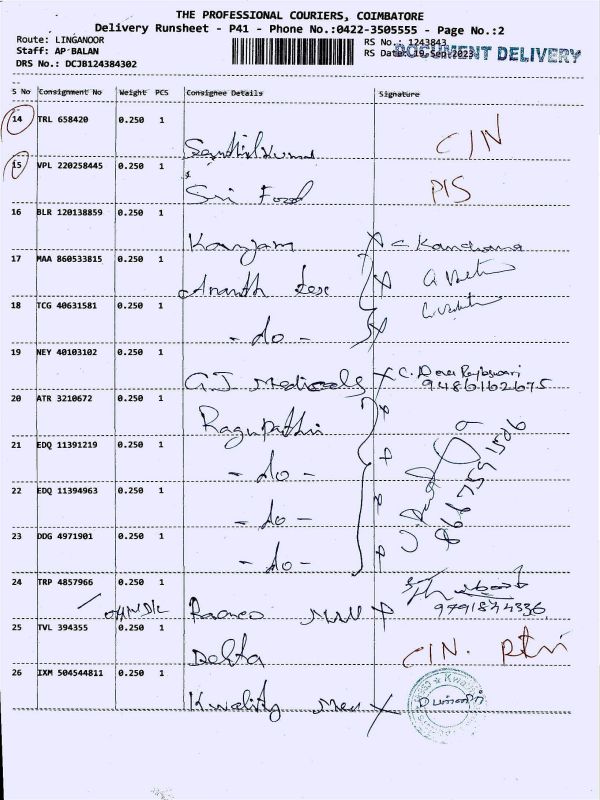 THE PROFESSIONAL COURIERS, COIMBATORE
Delivery Runsheet - P41 - Phone No.:0422-3505555 - Page No.:2
Route: LINGANOOR
RS No.: 1243843
Staff: AP BALAN
RS Date: 19-Sep-2023
DOCUMENT DELIVERY
DRS No.: DCJB124384302
S No Consignment No Weight PCS Consignee Details Signature
14 TRL 658420 0.250 1
Senthilkumar CIN
15 VPL 220258445 0.250 1
Sri Food PIS
16 BLR 120138859 0.250 1
Kanjam Kanchana
17 MAA 860533815 0.250 1
Ananth Tex
18 TCG 40631581 0.250 1
- do -
19 NEY 40103102 0.250 1
G.J Medicals 9486162675
20 ATR 3210672 0.250 1
Ragupathi
21 EDQ 11391219 0.250 1
- do -
22 EDQ 11394963 0.250 1
- do -
23 DDG 4971901 0.250 1
- do -
24 TRP 4857966 0.250 1
25 TVL 394355 0.250 1
Delta CIN.
26 IXM 504544811 0.250 1
Kwality